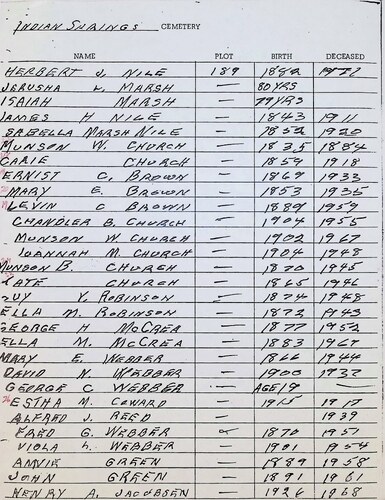 INDIAN SPRINGS CEMETERY
NAME PLOT BIRTH DECEASED
HERBERT J. NILE 189 1882
JERUSHA L. MARSH — 80 YRS
ISAIAH MARSH — 79 YRS
JAMES H NILE — 1843 1911
ISABELLA MARSH NILE — 1852 1920
MUNSON W. CHURCH — 1835 1884
CARIE CHURCH — 1859 1918
ERNIST C. BROWN — 1869 1933
MARY E. BROWN — 1853 1935
LEVIN C BROWN — 1889 1959
CHANDLER B. CHURCH — 1904 1955
MUNSON W CHURCH — 1902 1967
IOANNAH M. CHURCH — 1904 1948
MUNSON B. CHURCH — 1870 1945
KATE CHURCH — 1865 1946
GUY V. ROBINSON — 1874 1948
ELLA M. ROBINSON — 1872 1943
GEORGE H McCREA — 1877 1952
ELLA M. McCREA — 1883 1967
MARY E. WEBBER — 1866 1944
DAVID N. WEBBER — 1900 1932
GEORGE C WEBBER — AGE 19 —
ESTHA M. COWARD — 1915 1917
ALFRED J. REED 1939
FRED G. WEBBER 1870 1951
VIOLA L. WEBBER — 1901 1954
ANNIE GREEN — 1889 1958
JOHN GREEN — 1891 1961
HENRY A. JACOBSEN — 1926 1968